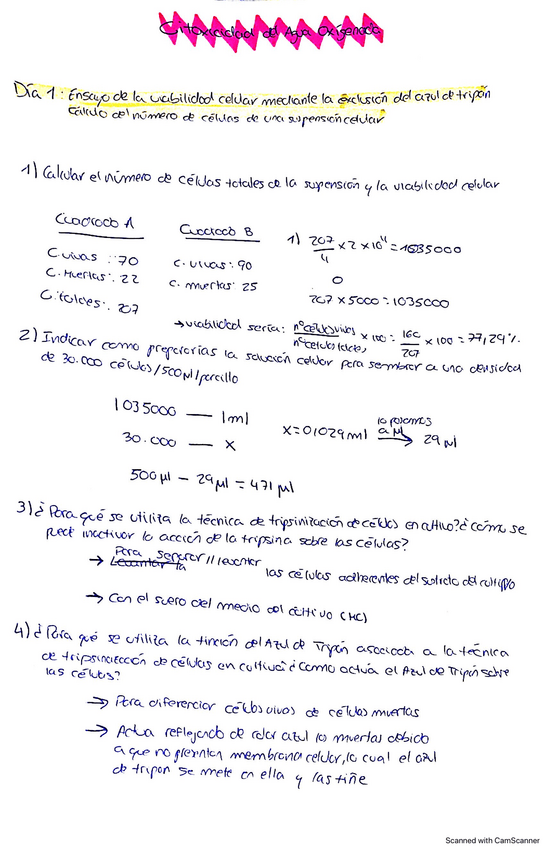 Citotoxicidad del Agua Oxigenada
Día 1: Ensayo de la viabilidad celular mediante la exclusión del azul de tripón
Cálculo del número de células de una suspensión celular
1) Calcular el número de células totales de la supensión y la viabilidad celular
Cuadrado A
C. vivas: 70
C. Muertas: 22
C. totales: 207
Cuadrado B
C. vivas: 90
C. muertas: 25
1) 207/4 x 2 x 10⁴ = 1035000
o
207 x 5000 = 1035000
→ viabilidad sería: nº células vivas/nº células totales x 100 = 160/207 x 100 = 77,29%.
2) Indicar como prepararías la solución celular para sembrar a una densidad
de 30.000 células/500µl/pocillo
1035000 — 1ml
30.000 — x
x = 0'029 ml lo pasamos a µl → 29 µl
500µl - 29µl = 471 µl
3) ¿Para qué se utiliza la técnica de tripsinización de células en cultivo? ¿cómo se
puede inactivar la acción de la tripsina sobre las células?
→ Para separar // levantar las células adherentes del sustrato del cultivo
→ Con el suero del medio del cultivo (MC)
4) ¿Para qué se utiliza la tinción del Azul de Tripán asociada a la técnica
de tripsinización de células en cultivo? ¿Cómo actúa el Azul de Tripán sobre
las células?
→ Para diferenciar células vivas de células muertas
→ Actua reflejando de color azul las muertas debido
a que no presentan membrana celular, lo cual el azul
de tripon se mete en ella y las tiñe
Scanned with CamScanner